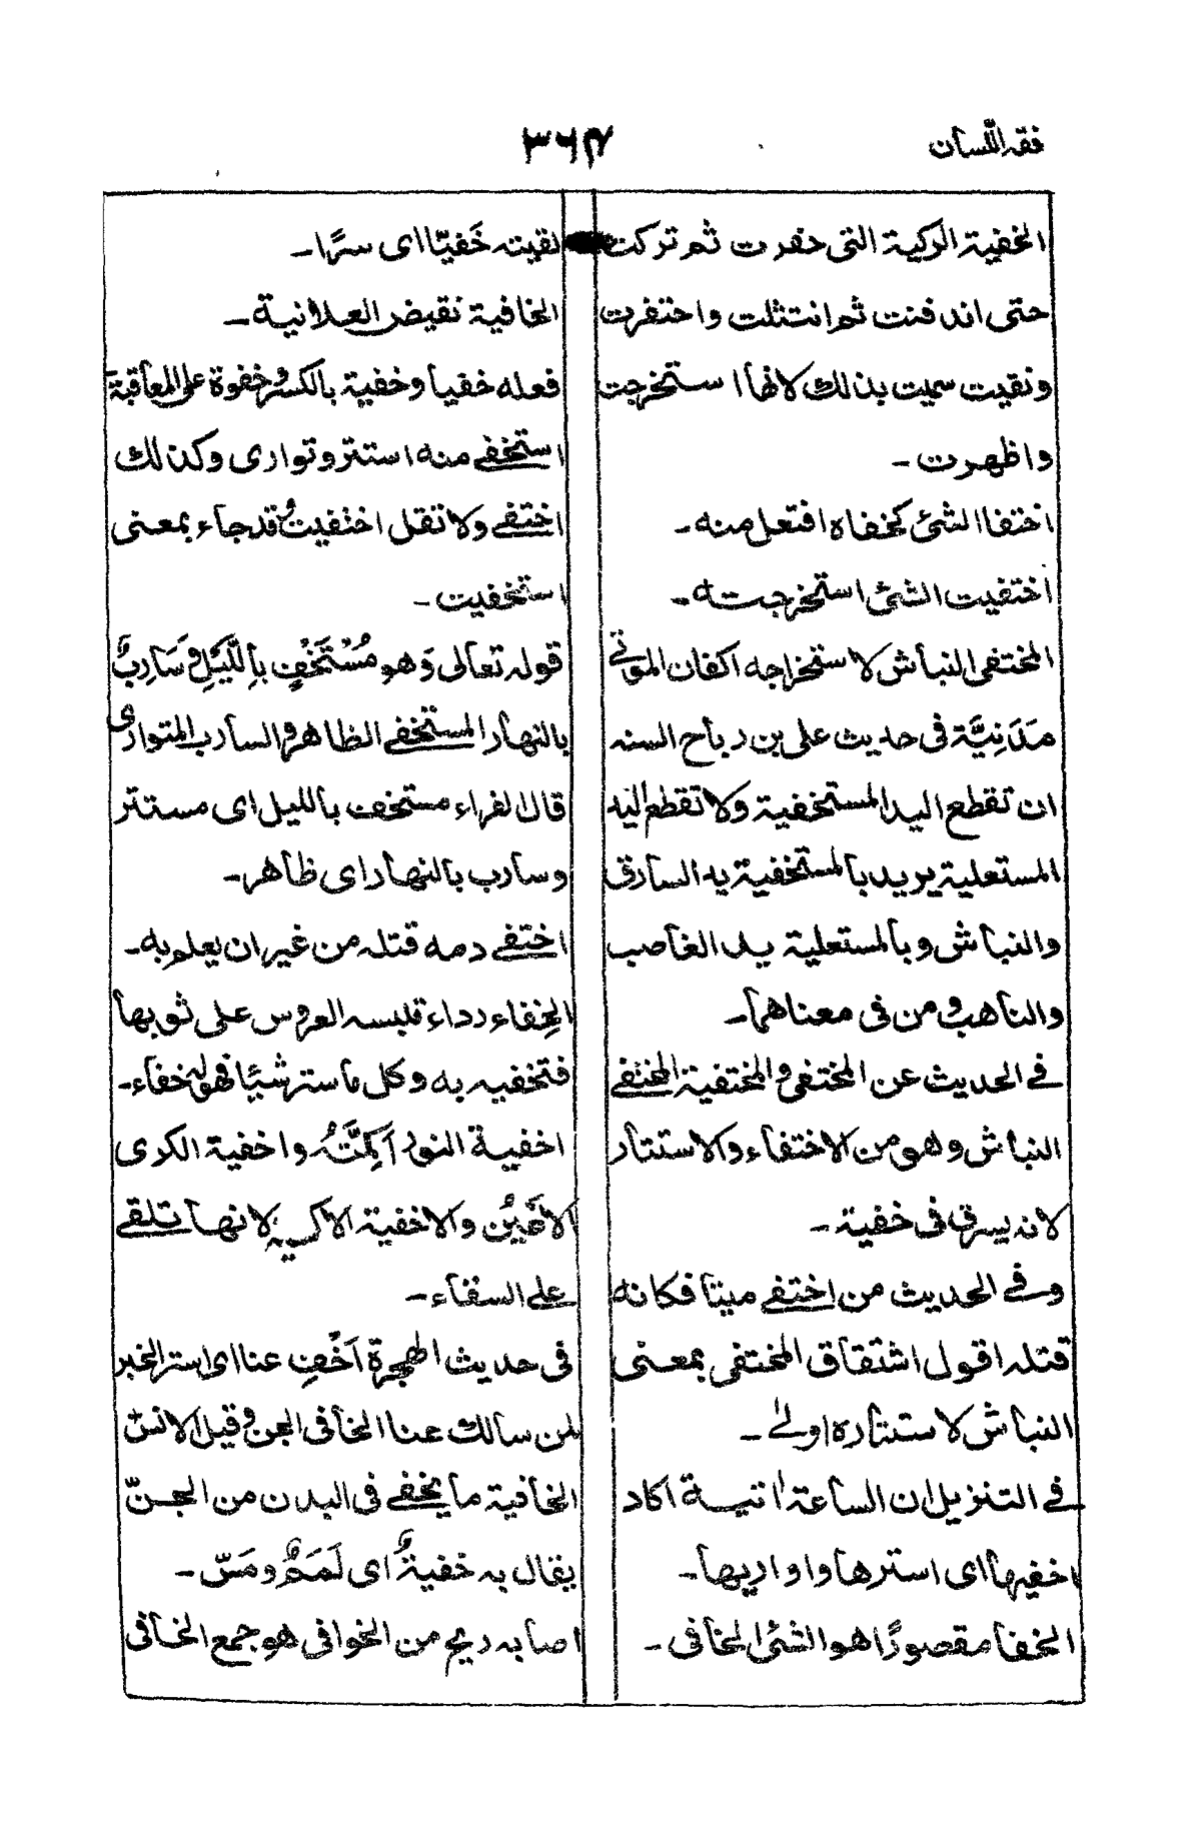 فقہ اللّسان
٣٦٧
الخفية الركية التى حفرت ثم تركت
حتى اندفنت ثم انتثلت واحتفرت
ونقيت سميت بذلك لانها استخرجت
واظهرت ـ
اختفا الشئ كخفاه افتعل منه ـ
اختفيت الشئ استخرجته ـ
المختفى النباش لاستخراجه اكفان الموتى
مَدَنِيَّة فى حديث على بن رباح السنه
ان تقطع اليد المستخفية ولا تقطع اليد
المستعلية يريد بالمستخفية يد السارق
والنباش وبالمستعلية يد الغاصب
والناهب ومن فى معناهما ـ
فے الحديث عن المختفى والمختفية المختفے
النباش وهو من الاختفاء والاستتار
لانه يسرق فى خفية ـ
وفے الحديث من اختفے ميتا فكانه
قتله اقول اشتقاق المختفى بمعنى
النباش لاستتاره اولىٰ ـ
فے التنزيل ان الساعة اٰتية اكاد
اخفيها اى استرها واواريها ـ
الخفا مقصورًا هو الشئ الخافى ـ
لقيته خَفيّا اى سرًا ـ
الخافية نقيض العلانية ـ
فعله خفيا وخفية بالكسر وخفوة على المعاقبة
استخفے منه استتر وتوارى وكذلك
اختفے ولا تقل اختفيت وقد جاء بمعنى
استخفيت ـ
قوله تعالى وَهو مُسْتَخْفٍ بِاللَّيْلِ وَسَارِبٌ
بالنهار المستخفے الظاهر والسارب المتوارى
قال الفراء مستخف بالليل اى مستتر
وسارب بالنهار اى ظاهر ـ
اختفے دمه قتله من غير ان يعلم به ـ
الخِفاء رداء تلبسه العروس على ثوبها
فتخفيه به وكل ما ستر شيًا فهو له خفاء ـ
اخفية النور اَكِمَّتُه واخفية الكرى
الاَعْيُن والاخفية الاكسيه لانها تلقے
على السقاء ـ
فى حديث الهجرة اَخْفِ عنا اى استر الخبر
لمن سالك عنا الخافى الجن وقيل الانس
الخافية ما يخفے فى البدن من الجنّ
يقال به خفيةٌ اى لَمَمٌ ومَسّ ـ
اصابه ريح من الخوافى هو جمع الخافى